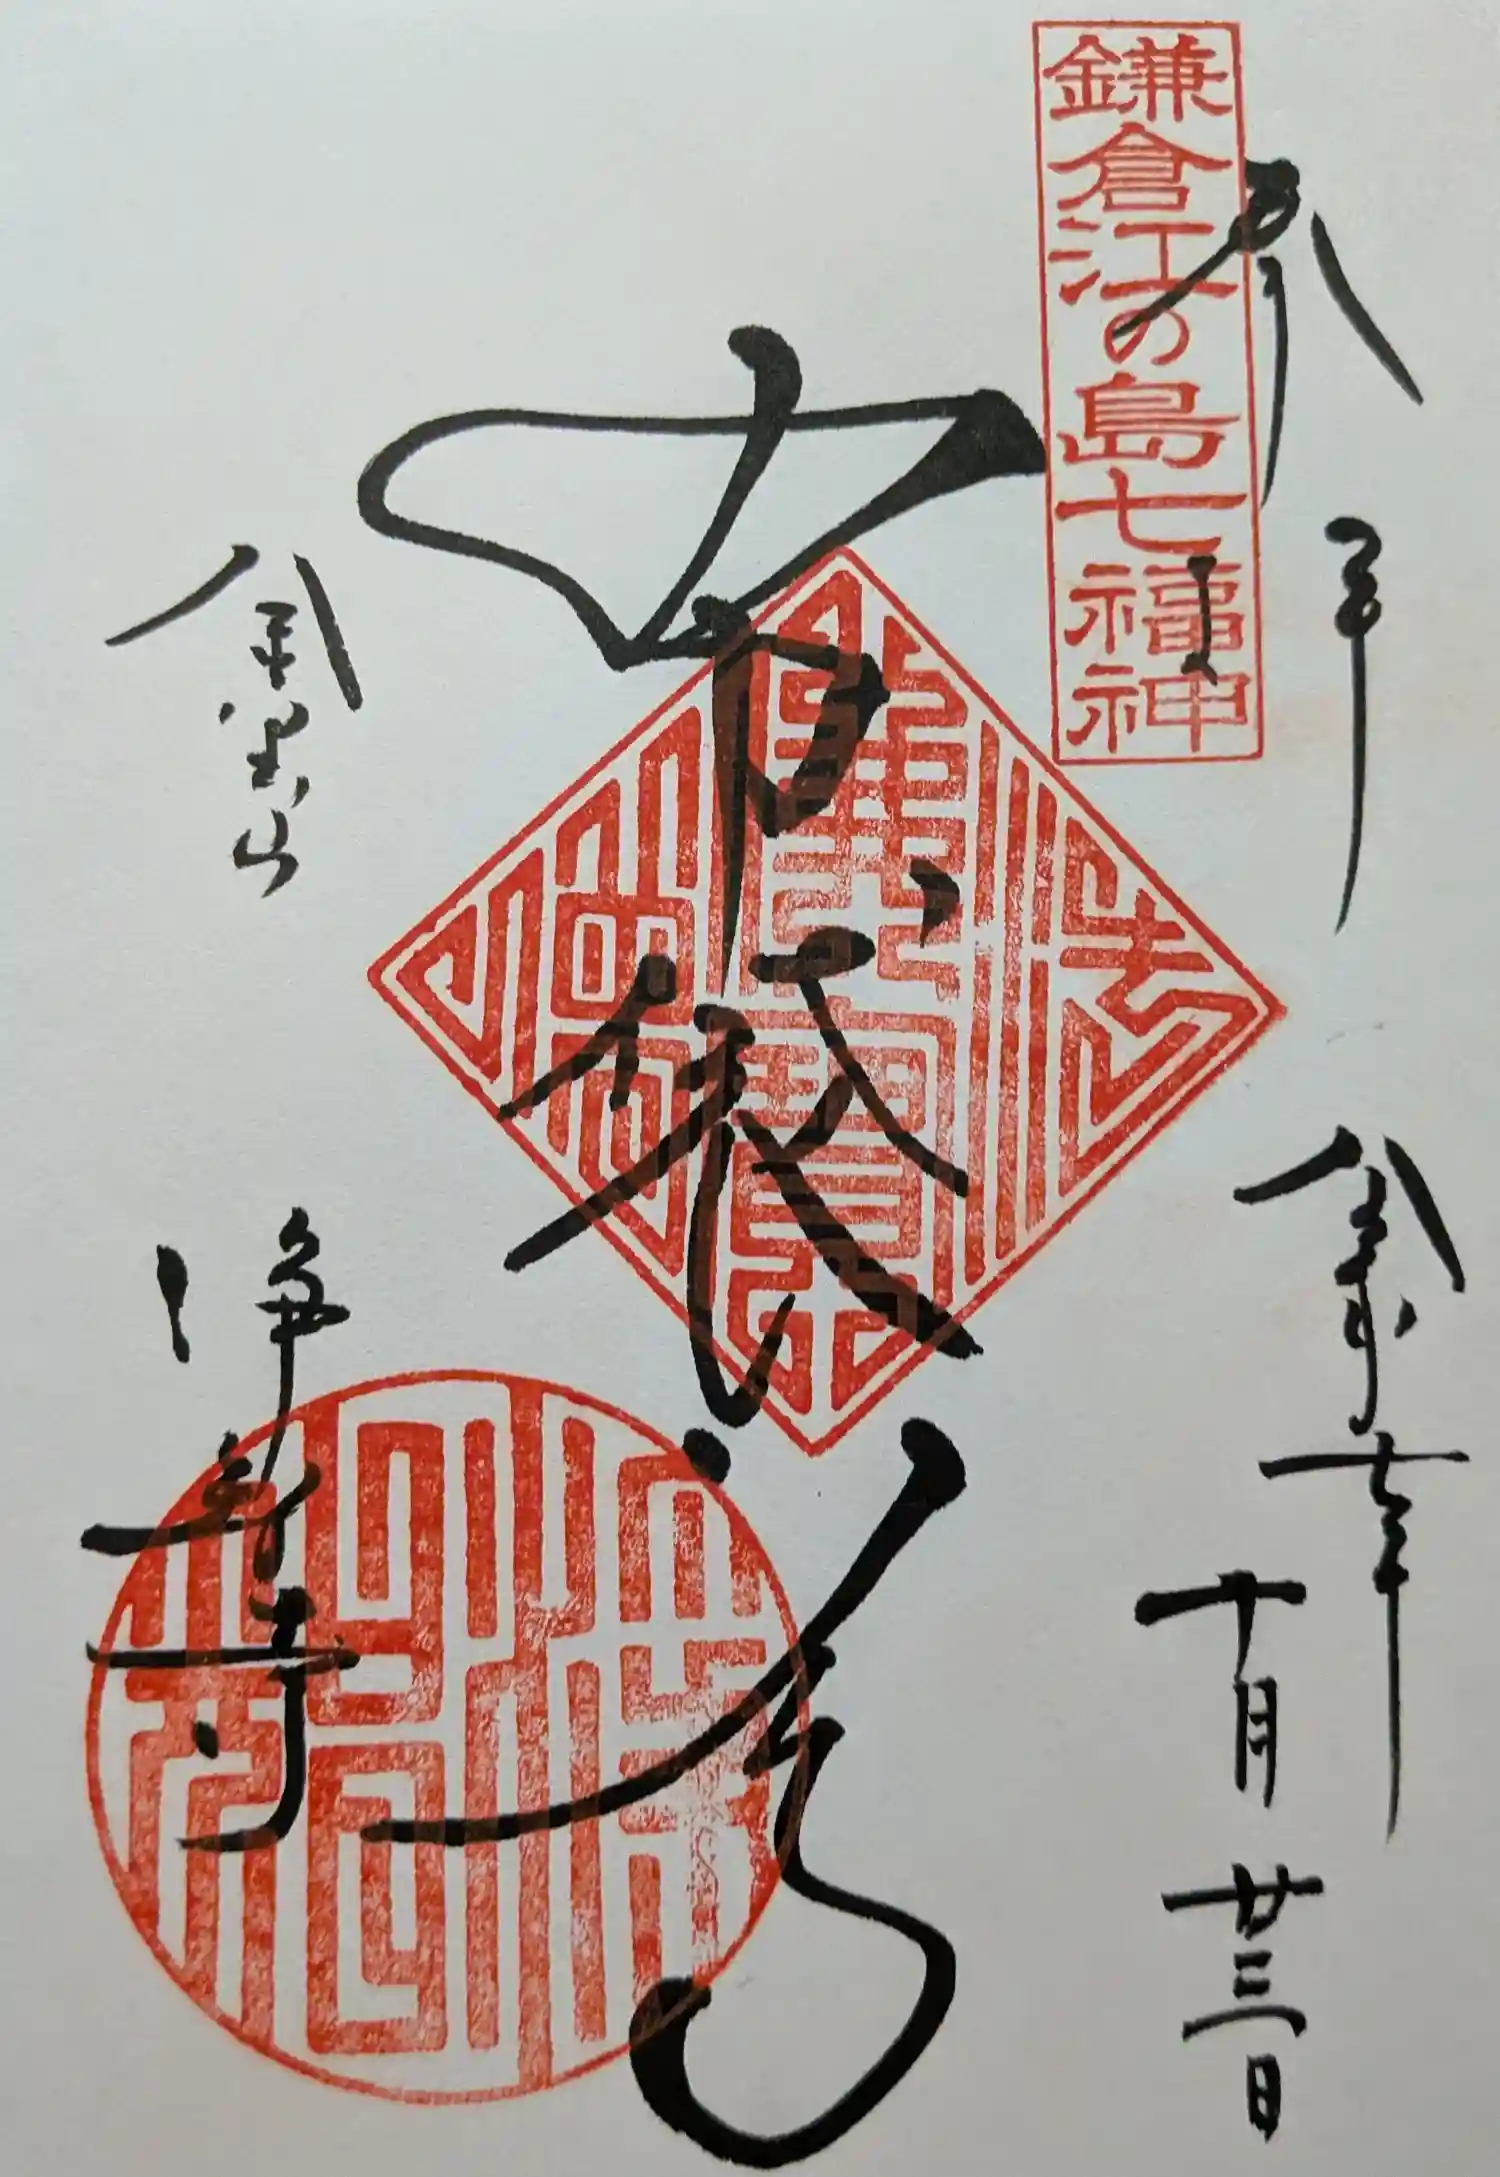 鎌倉江の島七福神
奉拝
令和七年
十月廿三日
布袋尊
金宝山
浄智寺